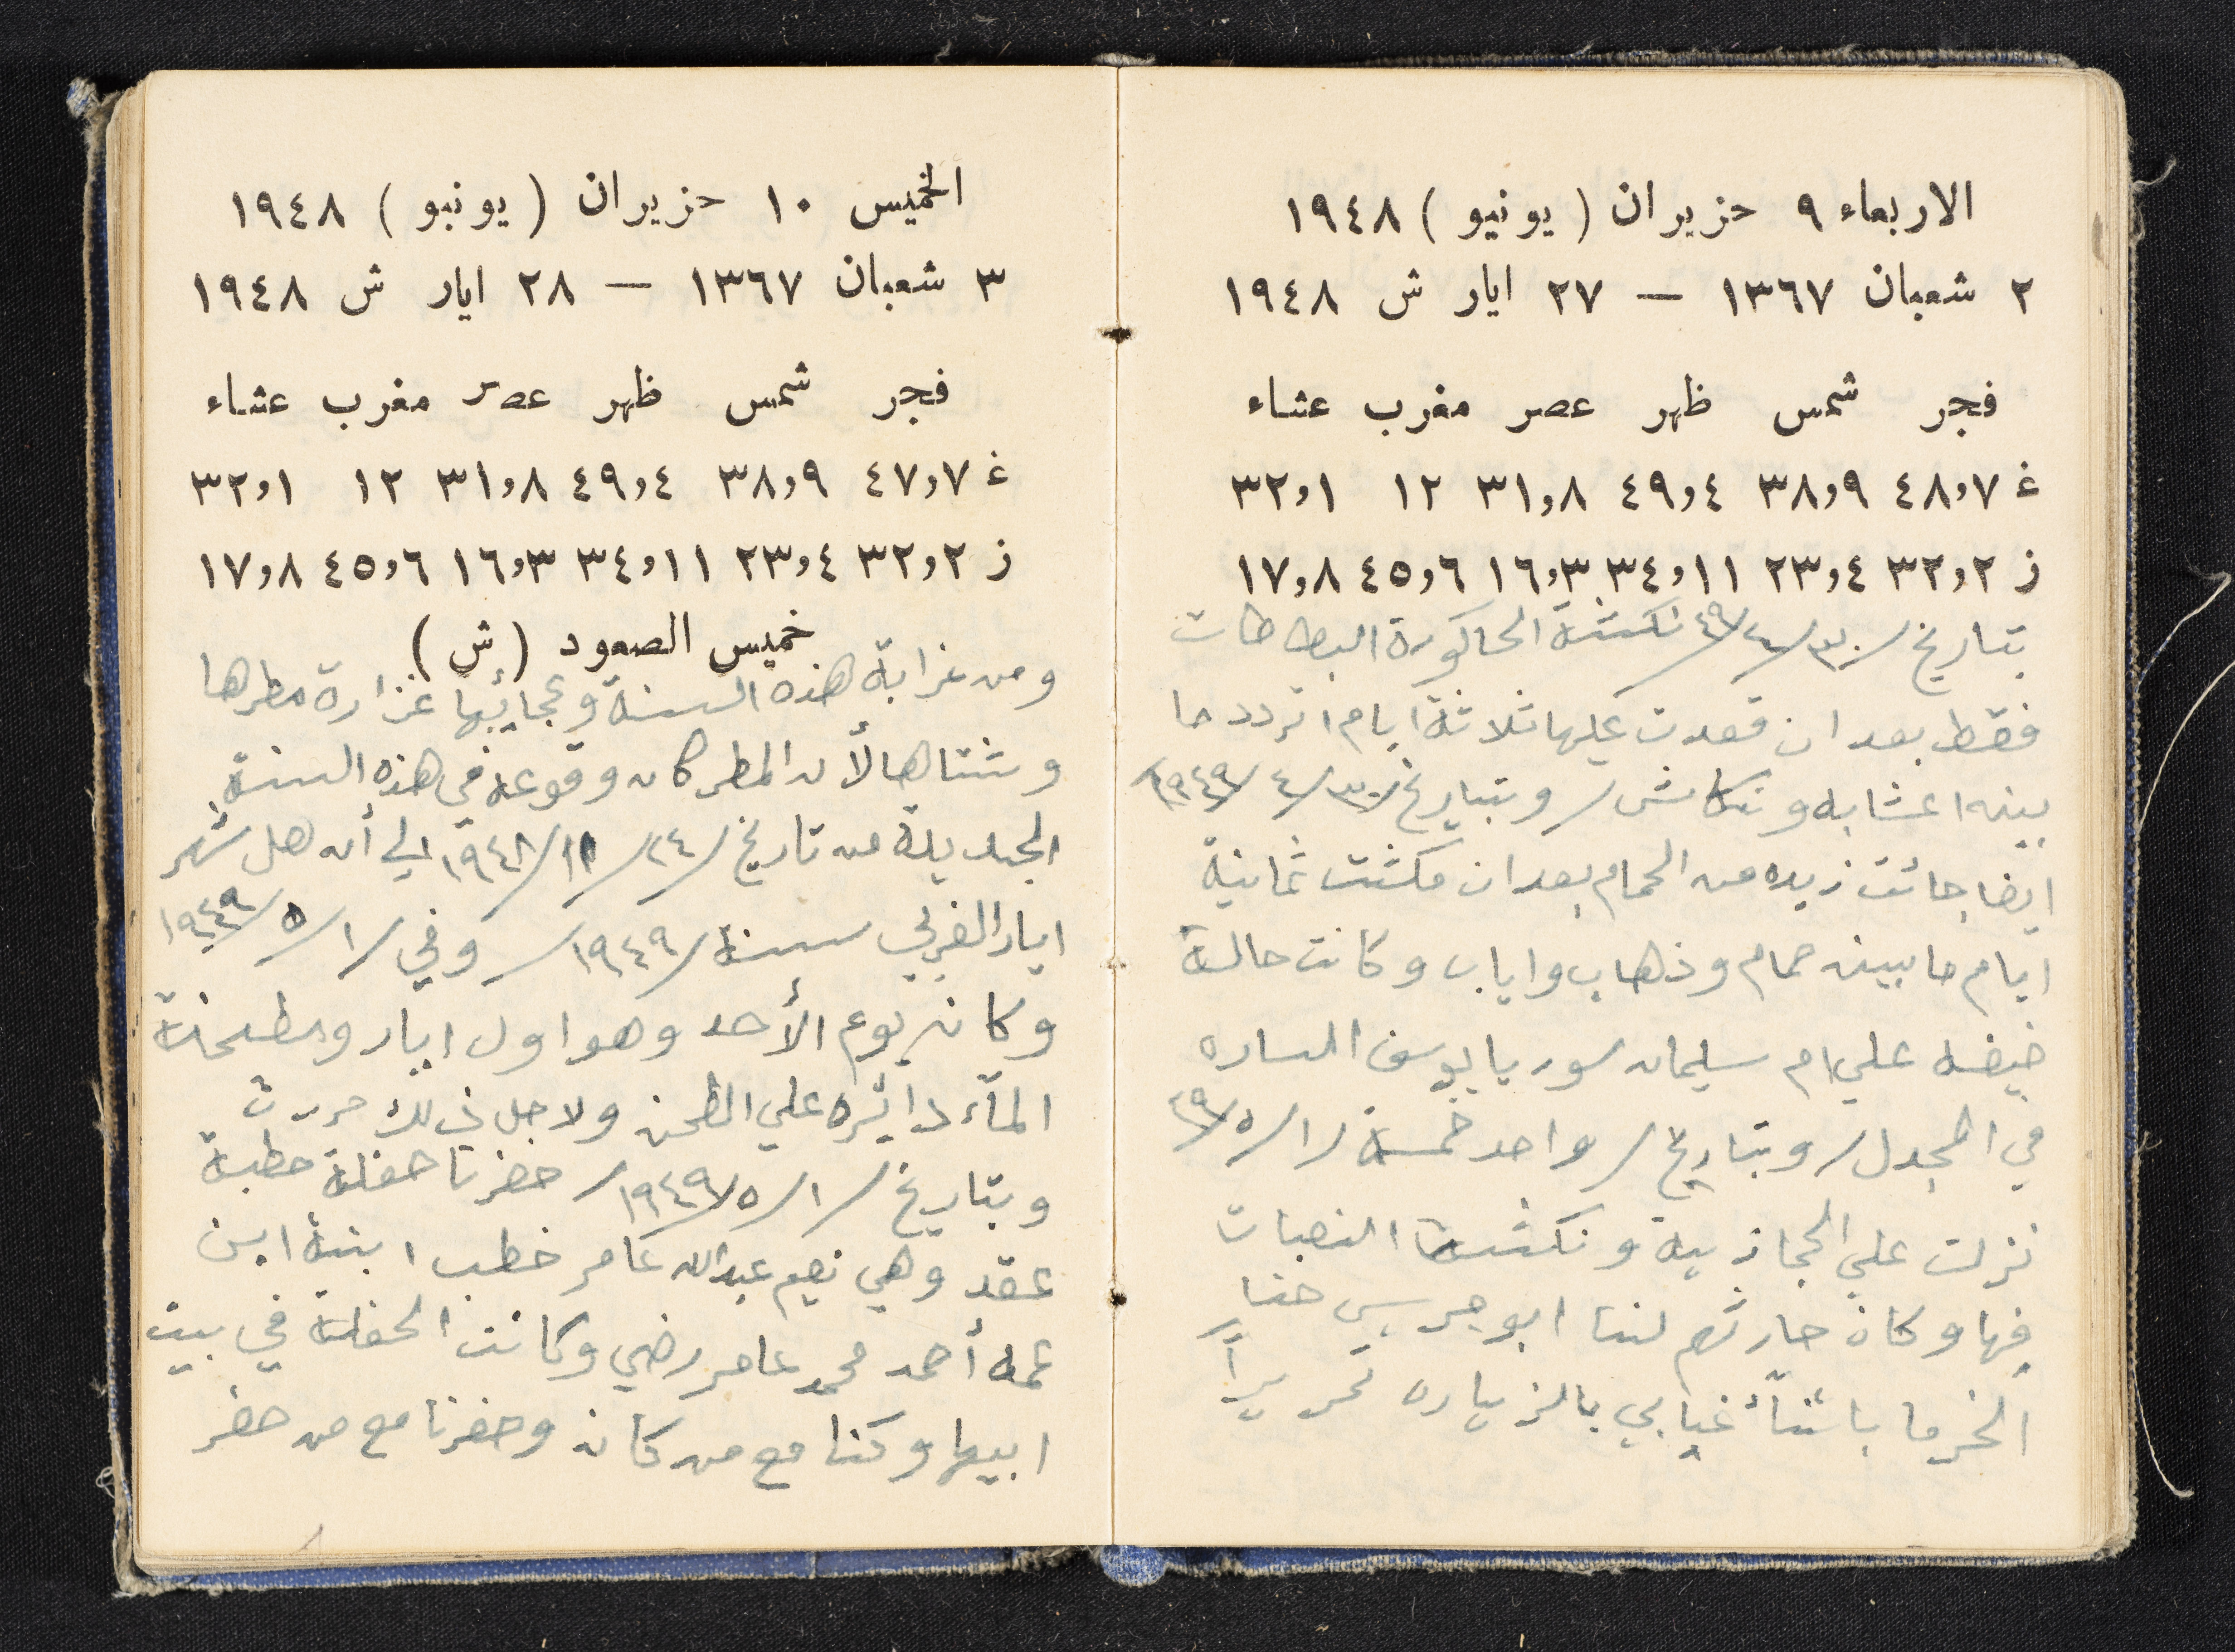 الاربعاء ٩ حزيران (يونيو) ١٩٤٨
٢ شعبان ١٣٦٧ — ٢٧ ايار ش ١٩٤٨
فجر شمس ظهر عصر مغرب عشاء
غ ٤٨,٧ ٣٨,٩ ٤٩,٤ ٣١,٨ ١٢ ٣٢,١
ز ٣٢,٢ ٢٣,٤ ٣٤,١١ ١٦,٣ ٤٥,٦ ١٧,٨
بتاريخ /٣٠/٤/٤٩ نكشة الحاكورة البطاطات
فقط بعد ان قعدت عليها ثلاثة ايام اتردد ما
بينه اعشابه ونكاش/ وبتاريخ /٣٠/٤/١٩٤٩
ايضا جائت زيده من الحمام بعد ان مكثت ثمانية
ايام ما بينه حمام وذهاب واياب وكانت حالة
ضيفه علي ام سليمان سوريا يوسف الساره
في المجدل/ وبتاريخ/ واحد خمسة /١/٥/٤٩
نزلت علي الحجازية ونكشة النصبات
فيها وكان حارثهم لنا ابو جريس حنا
الخرما باثنآء غيابي بالزياره تحريراً
الخميس ١٠ حزيران (يونيو) ١٩٤٨
٣ شعبان ١٣٦٧ — ٢٨ ايار ش ١٩٤٨
فجر شمس ظهر عصر مغرب عشاء
غ ٤٧,٧ ٣٨,٩ ٤٩,٤ ٣١,٨ ١٢ ٣٢,١
ز ٣٢,٢ ٢٣,٤ ٣٤,١١ ١٦,٣ ٤٥,٦ ١٧,٨
خميس الصعود (ش)
ومن غرابة هذه السنة وعجايبها غزارة مطرها
وشتاها لأن المطر كان وقوعه في هذه السنة
الجديدة من تاريخ /٢٤/١١/١٩٤٨ الي أن هل شهر
ايار الغربي سنة /١٩٤٩/ وفي /١/٥/١٩٤٩
وكان يوم الأحد وهو اول ايار ومطحنة
المآء دائره علي الطحن ولاجل ذلك حررت
وبتاريخ /١/٥/١٩٤٩/ حضرنا حفلة خطبة
عقد وهي نعيم عبدالله عامر خطب ابنة ابن
عمه أحمد محمد عامر رضي وكانت الحفلة في بيت
ابيها وكنا مع من كان وحضرنا مع من حضر